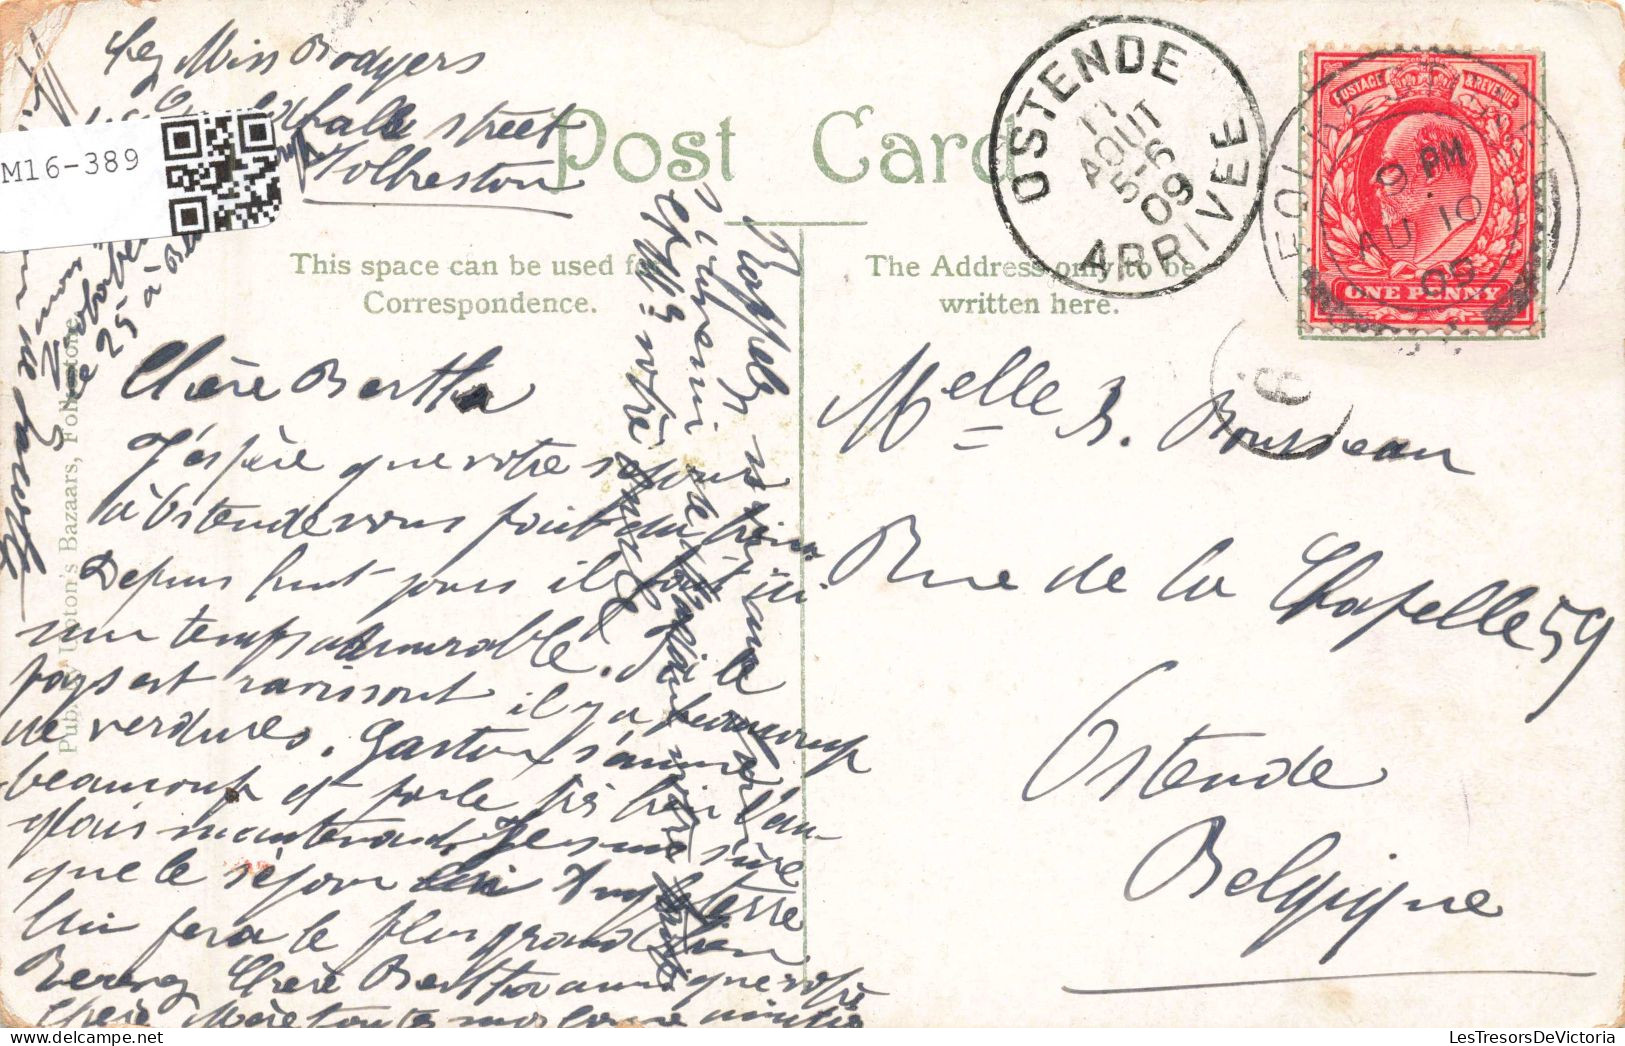 Chez Miss Rodgers
street
Folkestone
M16-389
Post Card
This space can be used for
Correspondence.
The Address only to be
written here.
OSTENDE
11
AOUT
5-6
09
ARRIVEE
POSTAGE & REVENUE
ONE PENNY
9 PM
AU 10
09
Chère Bertha
J'espère que votre séjour
à Ostende vous fait du bien
Depuis huit jours il fait ici
un temps admirable. le
pays est ravissant il y a beaucoup
de verdures. Gaston s'amuse
beaucoup et parle très bien l'an-
glais maintenant. Je suis sûre
que le séjour en Angleterre
lui fera le plus grand bien
Recevez Chère Bertha ainsi que votre
Chère Mère toutes mes bonne amitié
Rappelez
Melle B. Rousseau
Rue de la Chapelle 59
Ostende
Belgique
Pub. by Upton's Bazaars, Folkestone.
LesTresorsDeVictoria